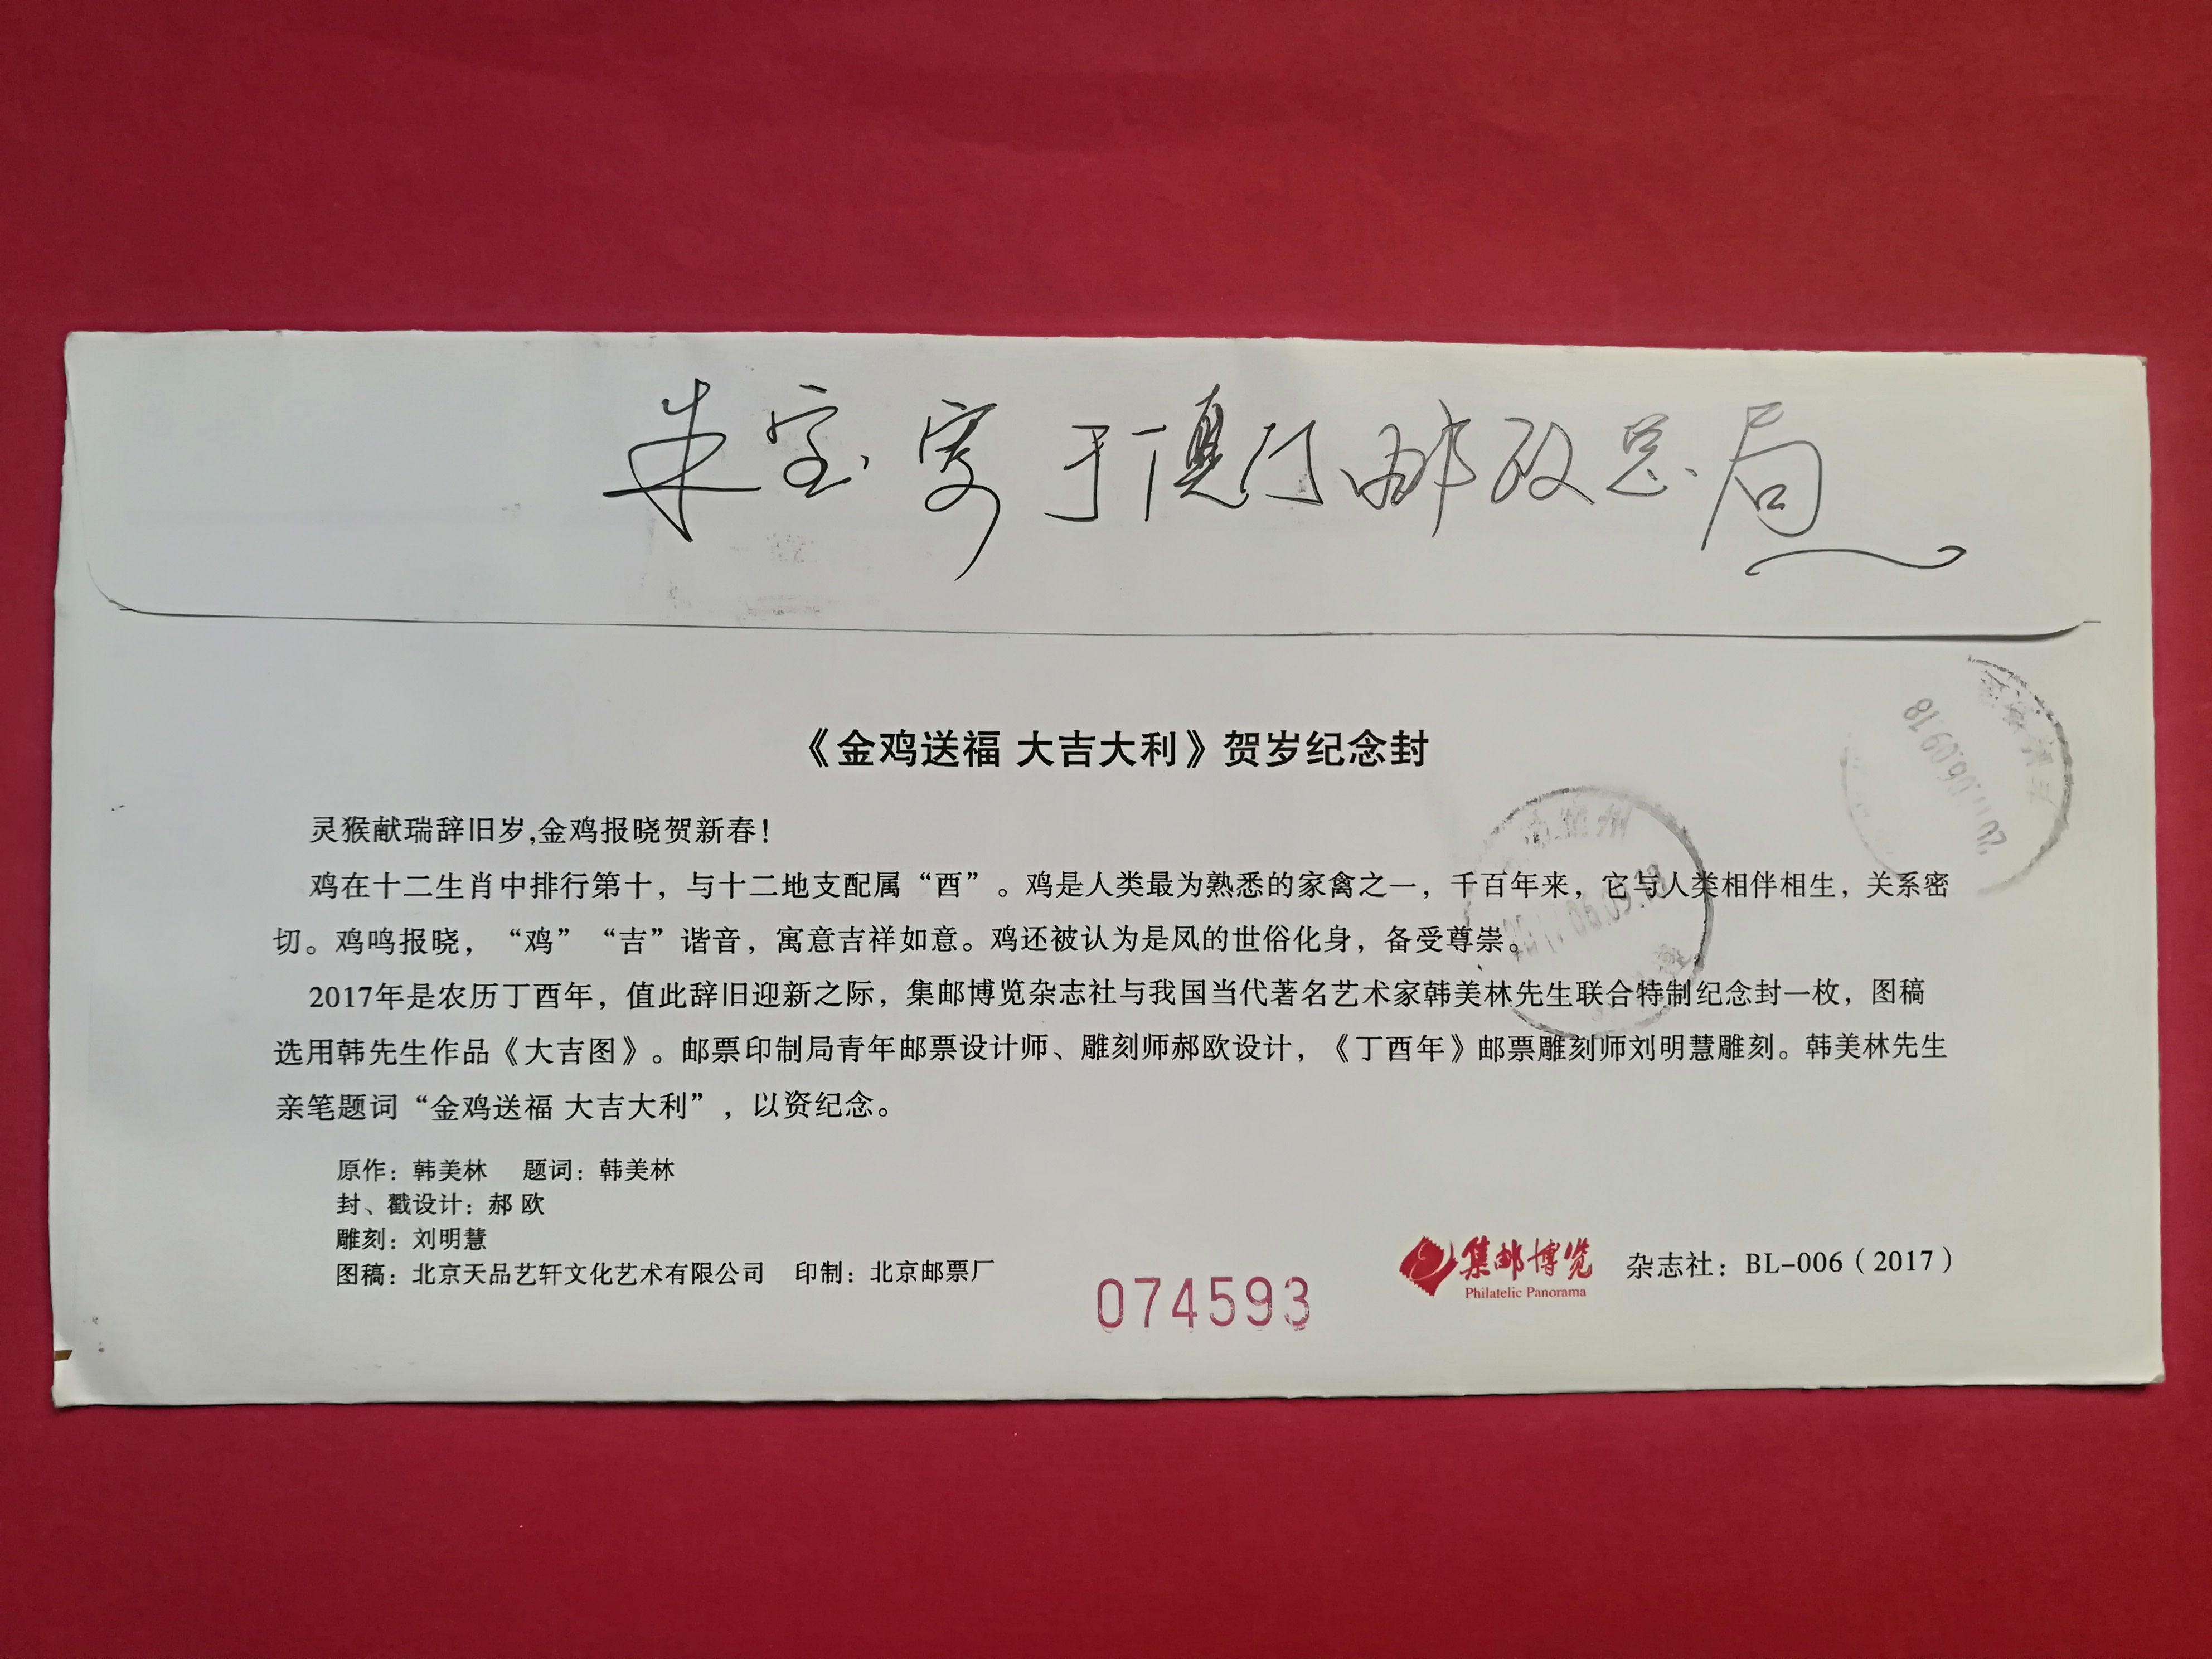 朱宝寄于厦门邮政总局
《金鸡送福 大吉大利》贺岁纪念封
灵猴献瑞辞旧岁,金鸡报晓贺新春!
鸡在十二生肖中排行第十，与十二地支配属“酉”。鸡是人类最为熟悉的家禽之一，千百年来，它与人类相伴相生，关系密
切。鸡鸣报晓，“鸡”“吉”谐音，寓意吉祥如意。鸡还被认为是凤的世俗化身，备受尊崇。
2017年是农历丁酉年，值此辞旧迎新之际，集邮博览杂志社与我国当代著名艺术家韩美林先生联合特制纪念封一枚，图稿
选用韩先生作品《大吉图》。邮票印制局青年邮票设计师、雕刻师郝欧设计，《丁酉年》邮票雕刻师刘明慧雕刻。韩美林先生
亲笔题词“金鸡送福 大吉大利”，以资纪念。
原作：韩美林 题词：韩美林
封、戳设计：郝 欧
雕刻：刘明慧
图稿：北京天品艺轩文化艺术有限公司 印制：北京邮票厂
074593
集邮博览
Philatelic Panorama
杂志社：BL-006（2017）